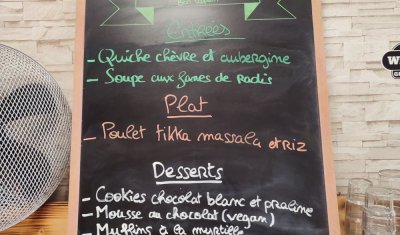 Bon appétit
Entrées
- Quiche chèvre et aubergine
- Soupe aux fanes de Radis
Plat
- Poulet tikka massala et RIZ
Desserts
- Cookies chocolat blanc et praline
- Mousse au chocolat (vegan)
- Muffins à la myrtille